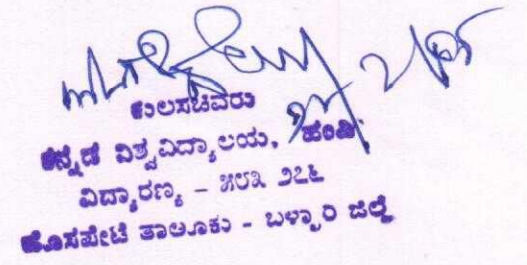 ಕುಲಸಚಿವರು
ಕನ್ನಡ ವಿಶ್ವವಿದ್ಯಾಲಯ, ಹಂಪಿ.
ವಿದ್ಯಾರಣ್ಯ - ೫೮೩ ೨೭೬
ಹೊಸಪೇಟೆ ತಾಲೂಕು - ಬಳ್ಳಾರಿ ಜಿಲ್ಲೆ